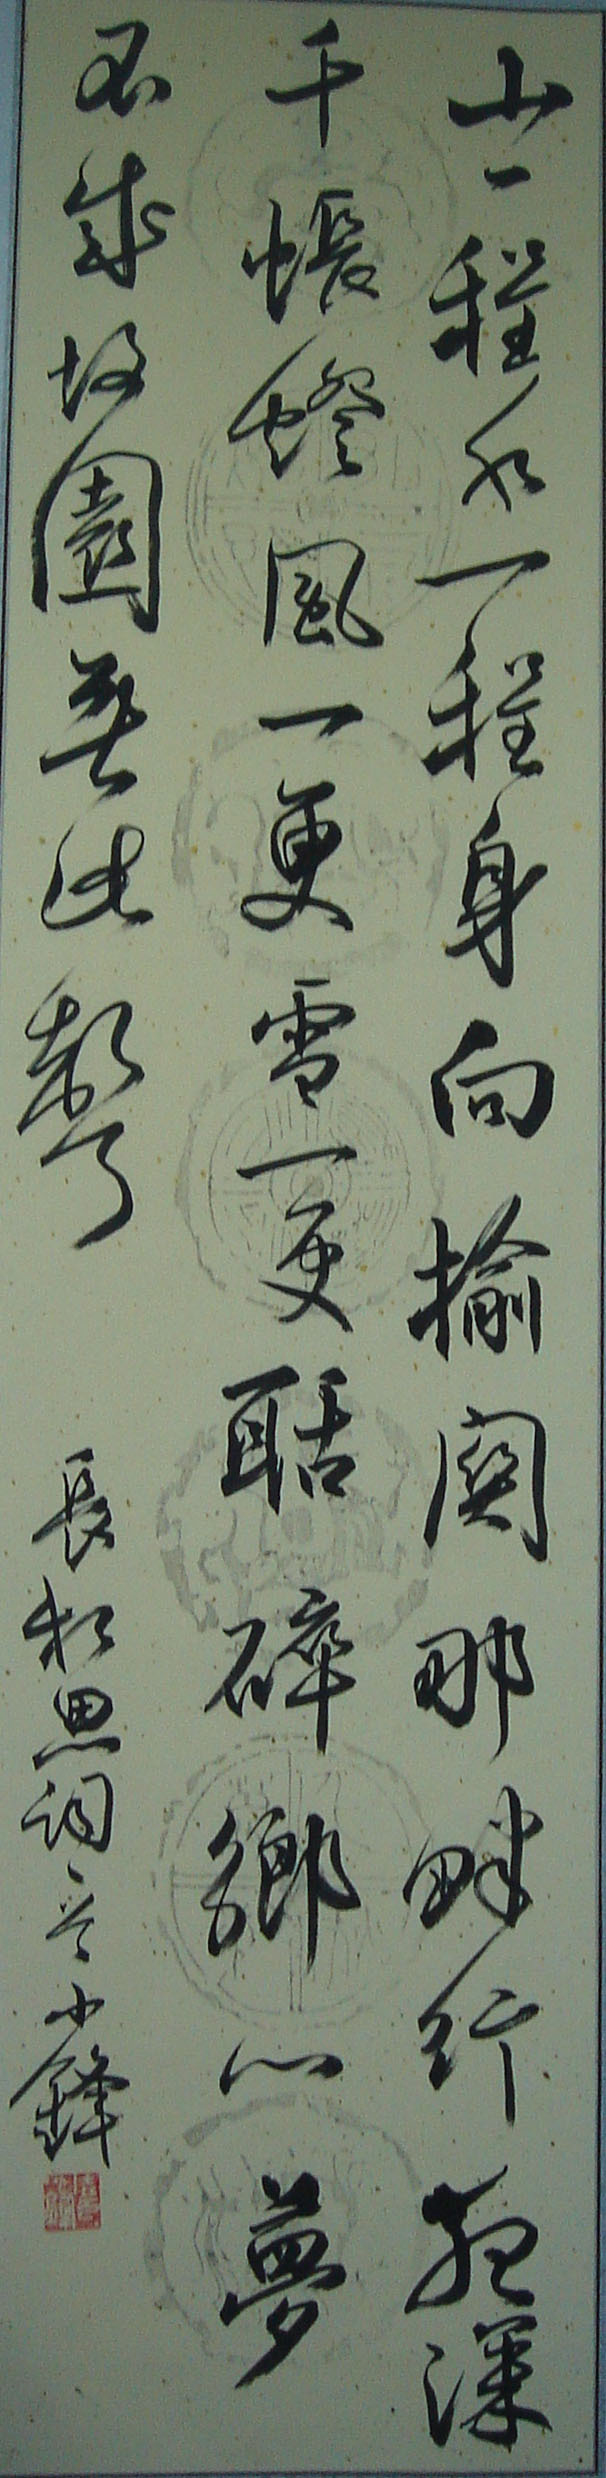 山一程水一程身向榆関那畔行夜深
千帳燈風一更雪一更聒碎鄉心夢
不成故園無此聲
長相思詞 小鋒